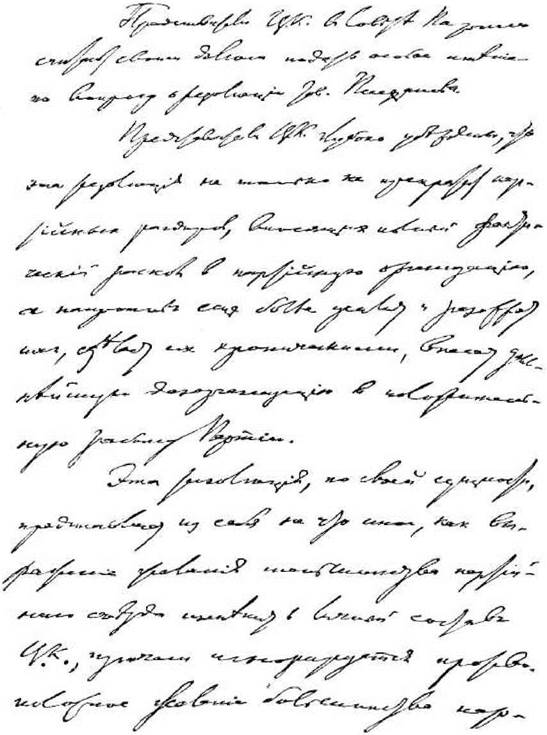 Представители Ц.К. в Совете Па́ртии
считают своим долгом подать особое мнѣние
по вопросу о резолюции тов. Плеханова.
Представители ЦК глубоко убѣждены, что
эта резолюція не только не прекратит пар-
тійных раздоров, вносящих полный факти-
ческій раскол в партійную организацію,
а напротив еще более усилит и разожжет
их, сдѣлает их хроническими, внесет даль-
нѣйшую дезорганизацію в положитель-
ную работу Партіи.
Эта резолюція, по своей сущности,
представляет из себя не что иное, как вы-
ражение желанія меньшинства партій-
ного съѣзда измѣнить личный состав
Ц.К., причем игнорируется противо-
положное желаніе большинства пар-